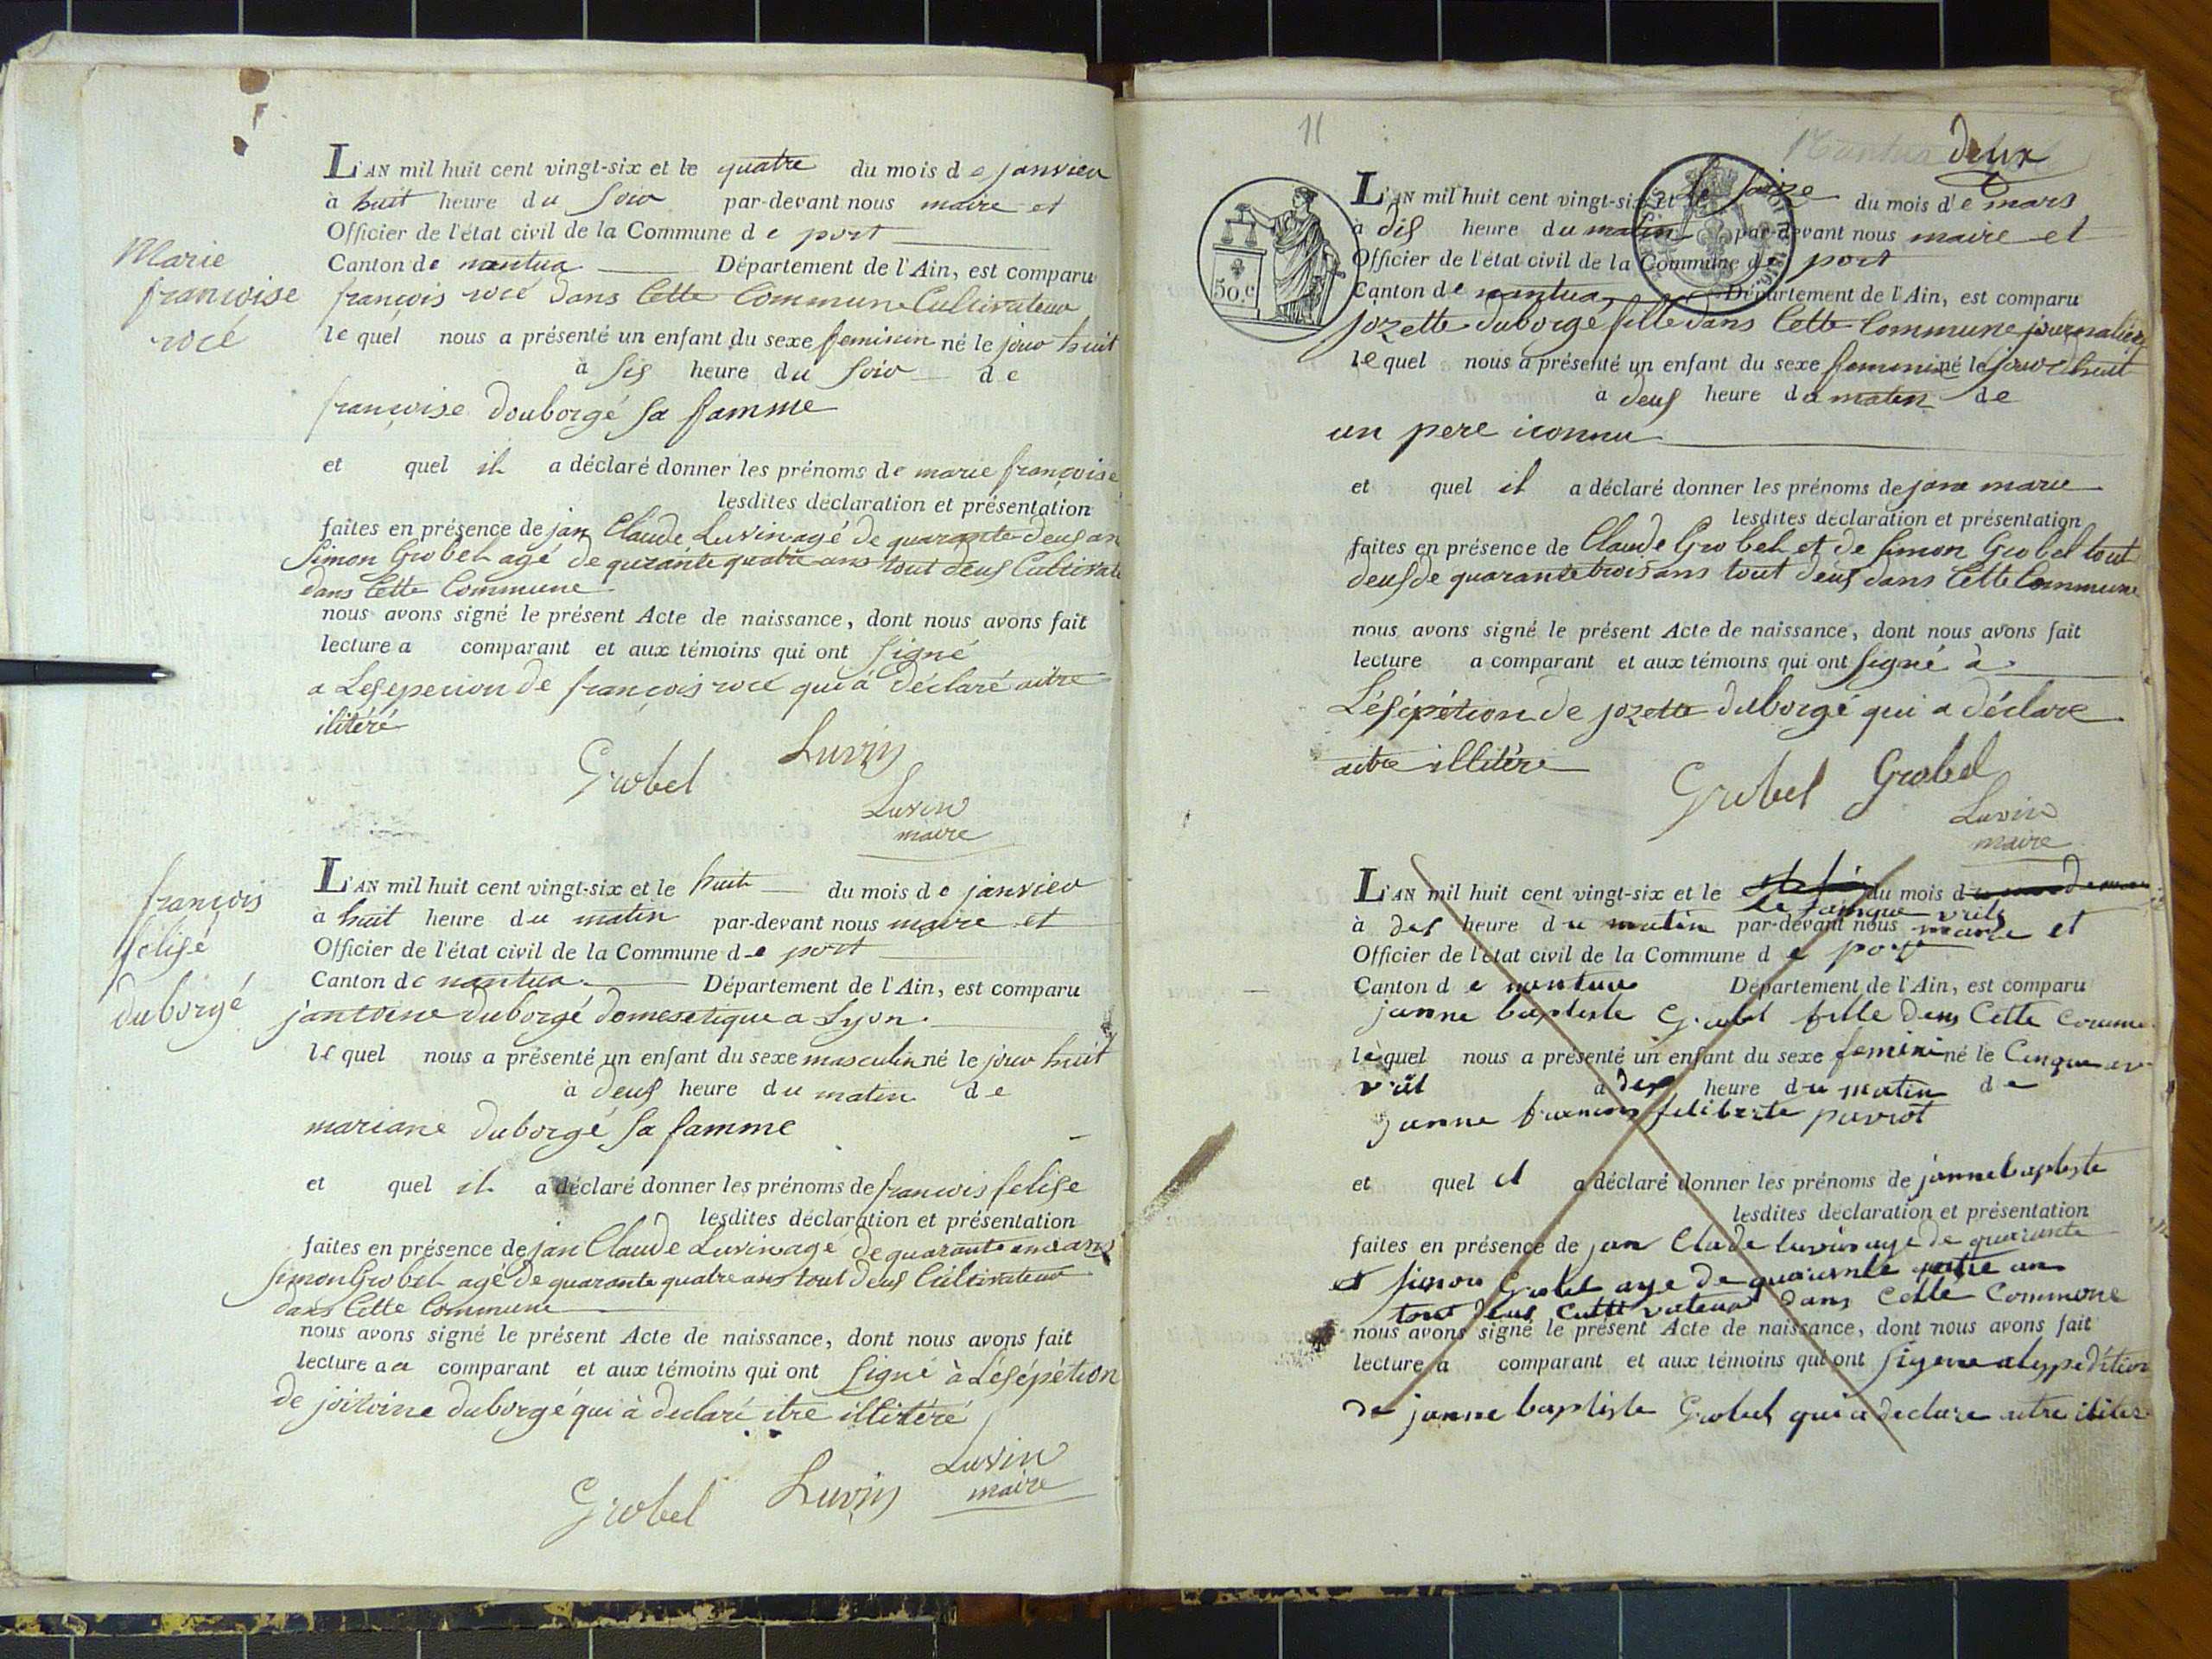 Marie
françoise
rocé
L'AN mil huit cent vingt-six et le quatre du mois de janvier
à huit heure du soir par-devant nous maire et
Officier de l'état civil de la Commune de port
Canton de nantua Département de l'Ain, est comparu
françois rocé dans Cette Commune Cultivateur
le quel nous a présenté un enfant du sexe feminin né le jour huit
à sis heure du soir de
françoise douborgé sa famme
et quel il a déclaré donner les prénoms de marie françoise
lesdites déclaration et présentation
faites en présence de jan Claude Luvin agé de quarante deus an
Simon Grobel agé de qurante quatre ans tout deus Cultivate
dans Cette Commune
nous avons signé le présent Acte de naissance, dont nous avons fait
lecture a comparant et aux témoins qui ont signé
a de françois rocé qui à déclaré aitre
ilitéré
Grobel Luvin
Luvin
maire
françois
felise
duborgé
L'AN mil huit cent vingt-six et le huit du mois de janvier
à huit heure du matin par-devant nous maire et
Officier de l'état civil de la Commune de port
Canton de nantua Département de l'Ain, est comparu
duborgé a Lyon
le quel nous a présenté un enfant du sexe masculin né le jour huit
à deus heure du matin de
mariane duborgé sa famme
et quel il a déclaré donner les prénoms de françois felise
lesdites déclaration et présentation
faites en présence de jan Claude Luvin agé de quarante ans
Simon Grobel agé de quarante quatre ans tout deus Cultivateur
dans Cette Commune
nous avons signé le présent Acte de naissance, dont nous avons fait
lecture a a comparant et aux témoins qui ont signé à Lésépétion
de duborgé qui à declaré itre illitéré
Grobel Luvin Luvin
maire
11
deux
L'AN mil huit cent vingt-six et le saize du mois de mars
à dis heure du matin par-devant nous maire et
Officier de l'état civil de la Commune de port
Canton de nantua Département de l'Ain, est comparu
50.c
jozette duborgé fille dans Cette Commune journalière
le quel nous a présenté un enfant du sexe feminin né le jour huit
à deus heure du matin de
un pere iconnu
et quel il a déclaré donner les prénoms de jane marie
lesdites déclaration et présentation
faites en présence de Claude Grobel et de Simon Grobel tout
deus de quarante trois ans tout deus dans Cette Commune
nous avons signé le présent Acte de naissance, dont nous avons fait
lecture a comparant et aux témoins qui ont signé à
Lésépétion de jozette duborgé qui a déclare
aitre illitére
Grobel Grobel
Luvin
maire
L'AN mil huit cent vingt-six et le du mois d
à des heure du matin par-devant nous maire et
Officier de l'état civil de la Commune de port
Canton de nantua Département de l'Ain, est comparu
janne baptiste Grobel fille dens Cette
lequel nous a présenté un enfant du sexe feminin né le Cinque av
vril à des heure du matin de
janne feliberte
et quel il a déclaré donner les prénoms de janne baptiste
lesdites déclaration et présentation
faites en présence de jan Clade luvin age de quarante
et simon Grobel age de quarante an
tout deus Cultivateur dans Cette Commone
nous avons signé le présent Acte de naissance, dont nous avons fait
lecture a comparant et aux témoins qui ont
de janne baptiste Grobel qui a declare aitre